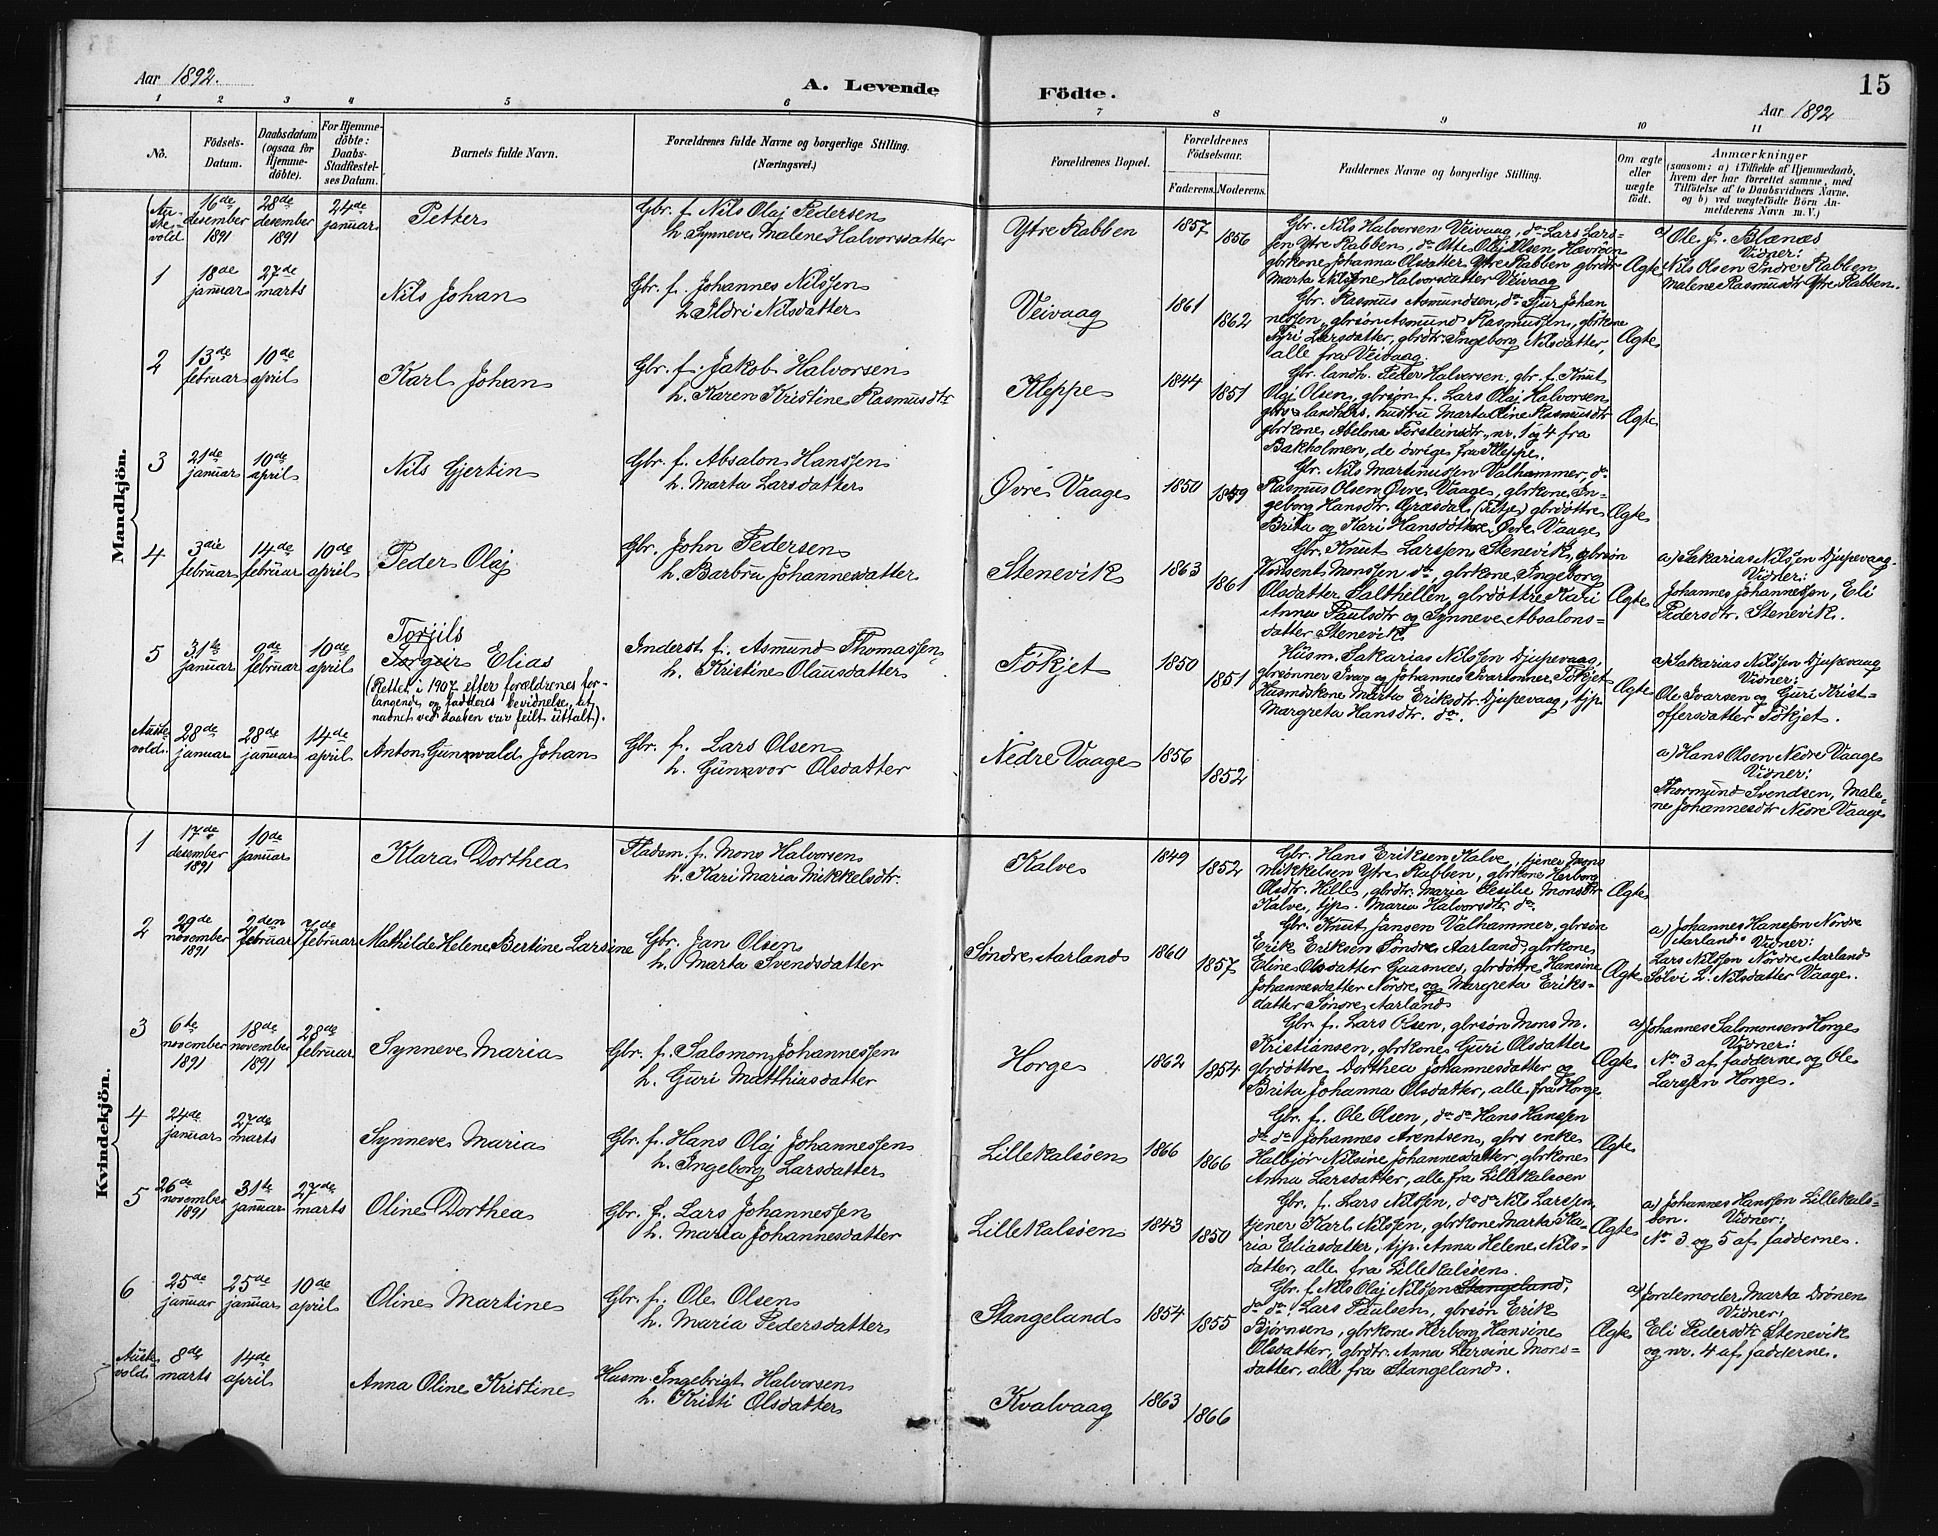 Aar 1892.
A. Levende
Födte.
15
Aar 1892
1 2 3 4 5 6 7 8 9 10 11
No.
Födsels-
Datum.
Daabsdatum
(ogsaa for
Hjemme-
döbte).
For Hjemme-
döbte:
Daabs-
Stadfæstel-
ses Datum.
Barnets fulde Navn.
Forældrenes fulde Navne og borgerlige Stilling.
(Næringsvei.)
Forældrenes Bopæl.
Forældrenes
Födselsaar.
Faderens. Moderens.
Faddernes Navne og borgerlige Stilling.
Om ægte
eller
uægte
födt.
Anmærkninger
(saasom: a) i Tilfælde af Hjemmedaab,
hvem der har forrettet samme, med
Tilföielse af to Daabsvidners Navne,
og b) ved uægtefödte Börn An-
melderens Navn m. V.)
Mandkjön.
16de desember 1891
28de desember 1891
24de januar
Petter
Gbr. f. Nils Olaj Pedersen
h. Synneve Malene Halvorsdatter
Ytre Rabben
1857
1856
Gbr. Nils Halversen Veivaag, do Lars Lars-
sen Ytre Rabben, do Otte Olaj Olsen Hævrøen
gbrkone Johanna Olsdatter Ytre Rabben gbrdtr
Marta Nilsine Halvorsdatter Veivaag
Ægte
a) Ole J. Blænæs
Vidner:
Nils Olsen Indre Rabben
Malene Rasmusdtr Ytre Rabben.
1
18de januar
27de marts
Nils Johan
Gbr. f. Johannes Nilssen
h. Ildri Nilsdatter
Veivaag
1861
1862
Gbr. Rasmus Asmundsen, do Sjur Johan-
nessen, gbrsøn Asmund Rasmussen, gbrkone
Larsdatter, gbrdtr. Ingeborg Nilsdatter,
alle fra Veivaag.
Ægte
2
13de februar
10de april
Karl Johan
Gbr. f. Jakob Halvorsen
h. Karen Kristine Rasmusdtr
Kleppe
1844
1851
Gbr. landh. Peder Halversen, gbr. f. Knut
Olaj Olsen, gbrsøn f. Lars Olaj Halvorsen
gbrs landhds. hustru Marta Oline Rasmusdtr
gbrkone Abelona Torsteinsdtr, nr. 1 og 4 fra
Bakholmen, de øvrige fra Kleppe.
Ægte
3
21de januar
10de april
Nils Gjertin
Gbr. f. Absalon Hanssen
h. Marta Larsdatter
Øvre Vaage
1850
1859
Gbr. Nils Martinussen Valhammer, do
Rasmus Olsen Øvre Vaage, gbrkone In-
geborg Hansdtr. Græsdal (Fitje) gbrdøttre
Brita og Kari Hansdøttre Øvre Vaage
Ægte
4
3die februar
14de februar
10de april
Peder Olaj
Gbr. John Pedersen
h. Barbru Johannesdatter
Stenevik
1863
1861
Gbr. Knut Larssen Stenevik, gbrsøn
Monssen do, gbrkone Ingeborg
Olsdatter Salthellen, gbrdøttre Kari
Anna Paulsdtr og Synneve Absalons-
datter Stenevik.
Ægte
a) Sakarias Nilssen Djupevaag.
Vidner:
Johannes Johannessen, Eli
Pedersdtr. Stenevik.
5
31te januar
9de februar
10de april
Torjils
Torgeir Elias
(Rettet i 1907 efter forældrenes for-
langende, og fadderes bevidnelse, at
navnet ved daaben var feilt uttalt).
Inderst f. Asmund Thomassen
h. Kristine Olausdatter
Tøkjet
1850
1851
Husm. Sakarias Nilssen Djupevaag,
gbrsønner Ivar og Johannes Ivarsønner Tøkjet
Husmdskone Marta Eriksdtr. Djupevaag, tjp.
Margreta Hansdtr. do.
Ægte
a) Sakarias Nilssen Djupevaag
Vidner:
Ole Ivarsen og Guri Krist-
offersdatter Tøkjet.
Auste-
vold.
28de januar
28de januar
14de april
Anton Gunnvald Johan
Gbr. f. Lars Olsen
h. Gunnvor Olsdatter
Nedre Vaage
1856
1852
a) Hans Olsen Nedre Vaage
Vidner:
Thormund Svendsen, Male-
ne Johannesdtr Nedre Vaage
Kvindekjön.
1
17de desember 1891
10de januar
Klara Dorthea
Pladsm. f. Mons Halvorsen
h. Kari Maria Mikkelsdtr.
Kalve
1849
1852
Gbr. Hans Eriksen Kalve, tjener Mons
Mikkelsen Ytre Rabben, gbrkone Herborg
Olsdtr. Hille, gbrdtr. Maria Cesilie Monsdtr
Kalve, tjp. Maria Halvorsdtr. do
Ægte
2
29de november 1891
2den februar
7de februar
Mathilde Helene Bertine Larsine
Gbr. Jan Olsen
h. Marta Svendsdatter
Søndre Aarland
1860
1857
Gbr. Knut Jansen Valhammer, gbrsøn
Erik Eriksen Søndre Aarland, gbrkone
Eline Olsdatter Gaasnæs, gbrdøttre Hansine
Johannesdatter Nordre og Margreta Eriks-
datter Søndre Aarland
Ægte
a) Johannes Hanssen Nordre
Aarland. Vidner:
Lars Nilssen Nordre Aarland
Sølvi L. Nilsdatter Vaage.
3
6te november 1891
18de november 1891
28de februar
Synneve Maria
Gbr. f. Salomon Johannessen
h. Guri Matthiasdatter
Horge
1862
1854
Gbr. f. Lars Olsen, gbrsøn Mons M.
Kristiansen, gbrkone Guri Olsdatter
gbrdøttre Dorthea Johannesdatter og
Brita Johanna Olsdatter, alle fra Horge
Ægte
a) Johannes Salomonsen Horge
Vidner:
No 3 af fadderne og Ole
Larssen Horge.
4
24de januar
27de marts
Synneve Maria
Gbr. f. Hans Olaj Johannessen
h. Ingeborg Larsdatter
Lillekalsøen
1866
1866
Gbr. f. Ole Olsen, do do Hans Hanssen
do do Johannes Arentsen, gbrs enke
Halbjør Nilsine Johannesdatter, gbrkone
Anna Larsdatter, alle fra Lillekalsøen
Ægte
5
26de november 1891
31te januar
27de marts
Oline Dorthea
Gbr. f. Lars Johannessen
h. Maria Johannesdatter
Lillekalsøen
1843
1850
Gbr. f. Lars Nilssen, do do Nils Larssen,
tjener Karl Nilssen, gbrkone Marta Ka-
ria Eliasdatter, tjp. Anna Helene Nils-
datter, alle fra Lillekalsøen.
Ægte
a) Johannes Hanssen Lillekals-
øen. Vidner:
No 3 og 5 af fadderne.
6
25de januar
25de januar
10de april
Oline Martine
Gbr. f. Ole Olsen
h. Maria Pedersdatter
Stangeland
1854
1855
Gbr. f. Nils Olaj Nilssen Stangeland,
do do Lars Paulsen, gbrsøn Erik
Bjørnsen, gbrkone Herborg Hansine
Olsdatter, gbrdtr. Anna Larsine Mons-
datter, alle fra Stangeland.
Ægte
a) Jordemoder Marta Drönen
Vidner:
Eli Pedersdtr Stenevik
og nr. 4 af fadderne.
Auste-
vold
8de marts
14de april
Anna Oline Kristine
Husm. Ingebrigt Halvorsen
h. Kristi Olsdatter
Kvalvaag
1863
1866